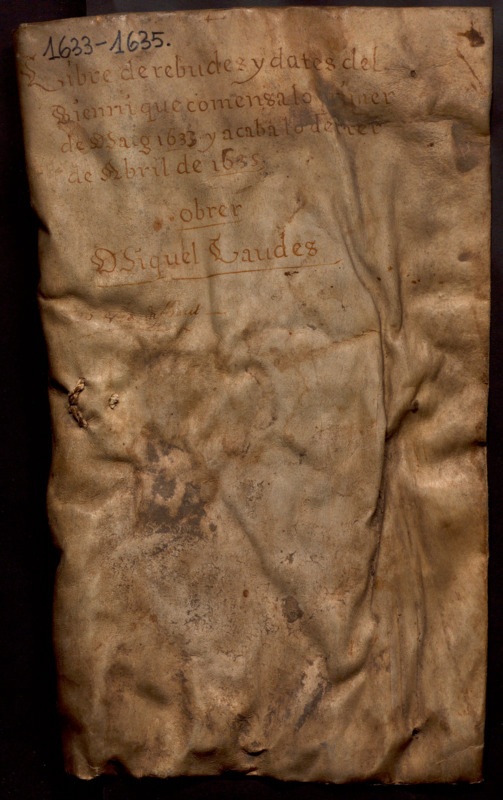 1633-1635.
Llibre de rebudes y dates del
Bienni que comensa lo primer
de Maig 1633 y acaba lo derrer
de Abril de 1635.
obrer
Miquel Laudes